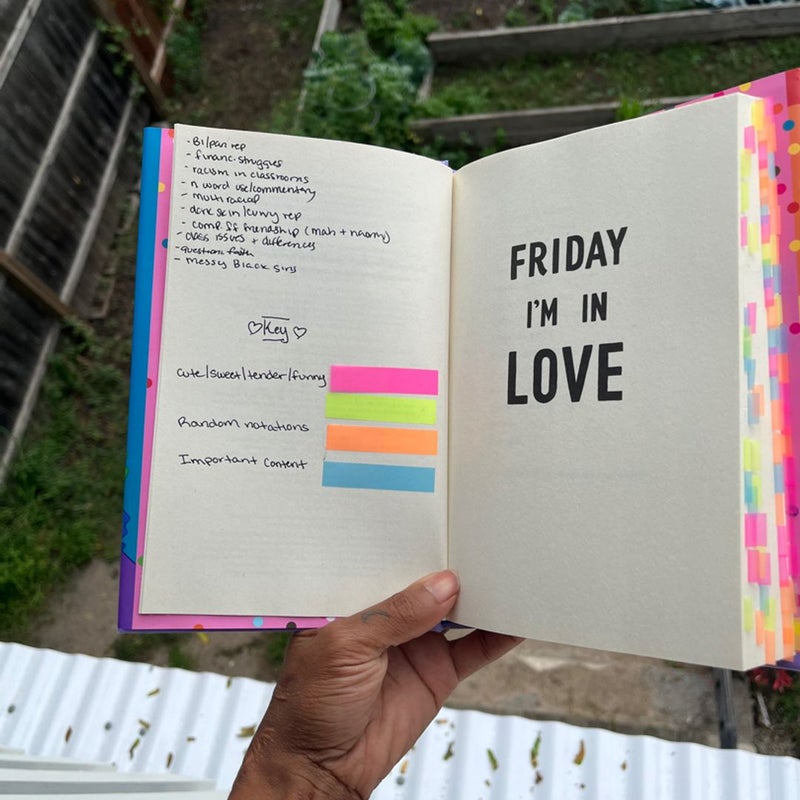 - Bi/pan rep
- financ. struggles
- racism in classrooms
- n word use/commentary
- multi racial
- dark skin/curvy rep
- comp. ff friendship (mah + naomy)
- class issues + differences
- question faith
- messy Black girls
♡Key♡
cute/sweet/tender/funny
Random notations
Important content
FRIDAY
I'M IN
LOVE